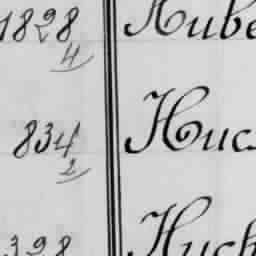 1828 Hube
4
834 Huc
2
398 Huch